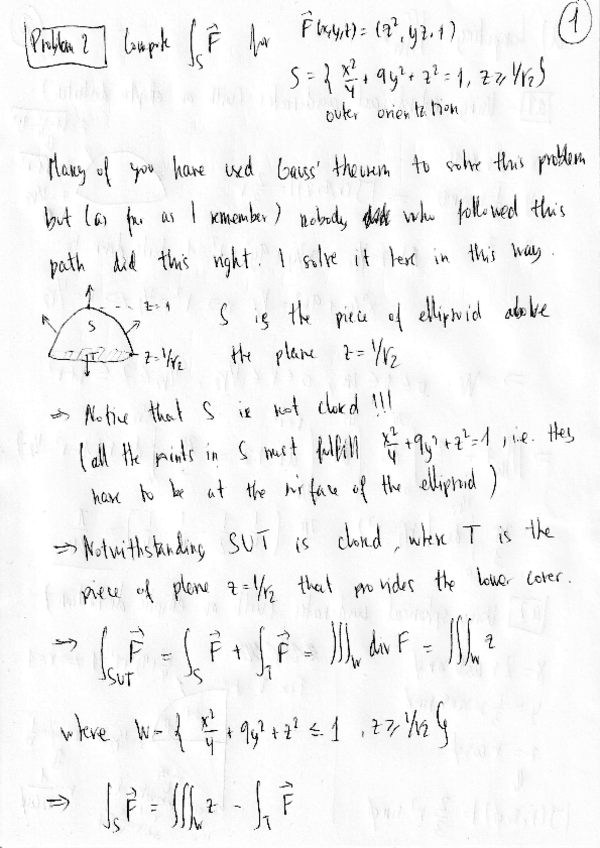 1
Problem 2 Compute ∫_S F⃗ for F⃗(x,y,z) = (z², yz, 1)
S = { x²/4 + 9y² + z² = 1, z ≥ 1/√2 }
outer orientation
Many of you have used Gauss' theorem to solve this problem
but (as far as I remember) nobody who followed this
path did this right. I solve it here in this way.
z=1
S
T
z=1/√2
S is the piece of ellipsoid above
the plane z = 1/√2
⇒ Notice that S is not closed !!!
(all the points in S must fulfill x²/4 + 9y² + z² = 1, i.e. they
have to be at the surface of the ellipsoid)
⇒ Notwithstanding S∪T is closed, where T is the
piece of plane z=1/√2 that provides the lower cover.
⇒ ∫_{S∪T} F⃗ = ∫_S F⃗ + ∫_T F⃗ = ∭_W div F = ∭_W z
where W = { x²/4 + 9y² + z² ≤ 1, z ≥ 1/√2 }
⇒ ∫_S F⃗ = ∭_W z - ∫_T F⃗